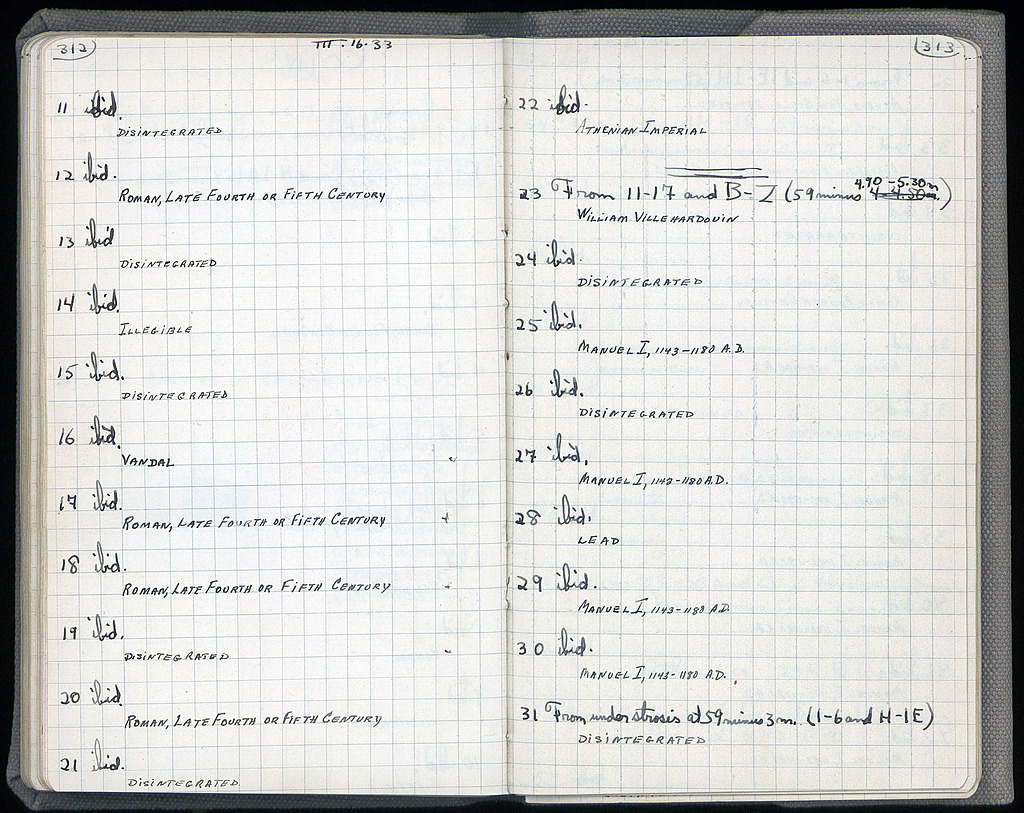 312
III.16.33
11 ibid.
DISINTEGRATED
12 ibid.
ROMAN, LATE FOURTH OR FIFTH CENTURY
13 ibid
DISINTEGRATED
14 ibid.
ILLEGIBLE
15 ibid.
DISINTEGRATED
16 ibid.
VANDAL
17 ibid.
ROMAN, LATE FOURTH OR FIFTH CENTURY
18 ibid.
ROMAN, LATE FOURTH OR FIFTH CENTURY
19 ibid.
DISINTEGRATED
20 ibid.
ROMAN, LATE FOURTH OR FIFTH CENTURY
21 ibid.
DISINTEGRATED
313
22 ibid.
ATHENIAN IMPERIAL
4.90 - 5.30m
23 From 11-17 and B-Z (59 minus 4-4.50m.)
WILLIAM VILLEHARDOUIN
24 ibid.
DISINTEGRATED
25 ibid.
MANUEL I, 1143-1180 A.D.
26 ibid.
DISINTEGRATED
27 ibid.
MANUEL I, 1143-1180 A.D.
28 ibid.
LEAD
29 ibid.
MANUEL I, 1143-1180 A.D.
30 ibid.
MANUEL I, 1143-1180 A.D.
31 From under strosis at 59 minus 3m. (1-6 and H-IE)
DISINTEGRATED